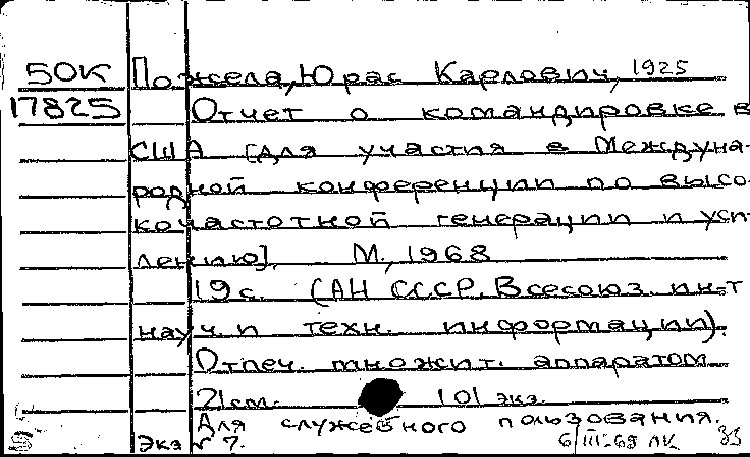 50К Пожела, Юрас Карлович, 1925
17825 Отчет о командировке в
США [для участия в Междуна-
родной конференции по высо-
кочастотной генерации и усп-
лению]. М., 1968
19 с. (АН СССР. Всесоюз. ин-т
науч. и техн. информации).
Отпеч. множит. аппаратом
21 см. 101 экз.
Для служебного пользования.
Экз № 7. 6/III-69 ЛК 33